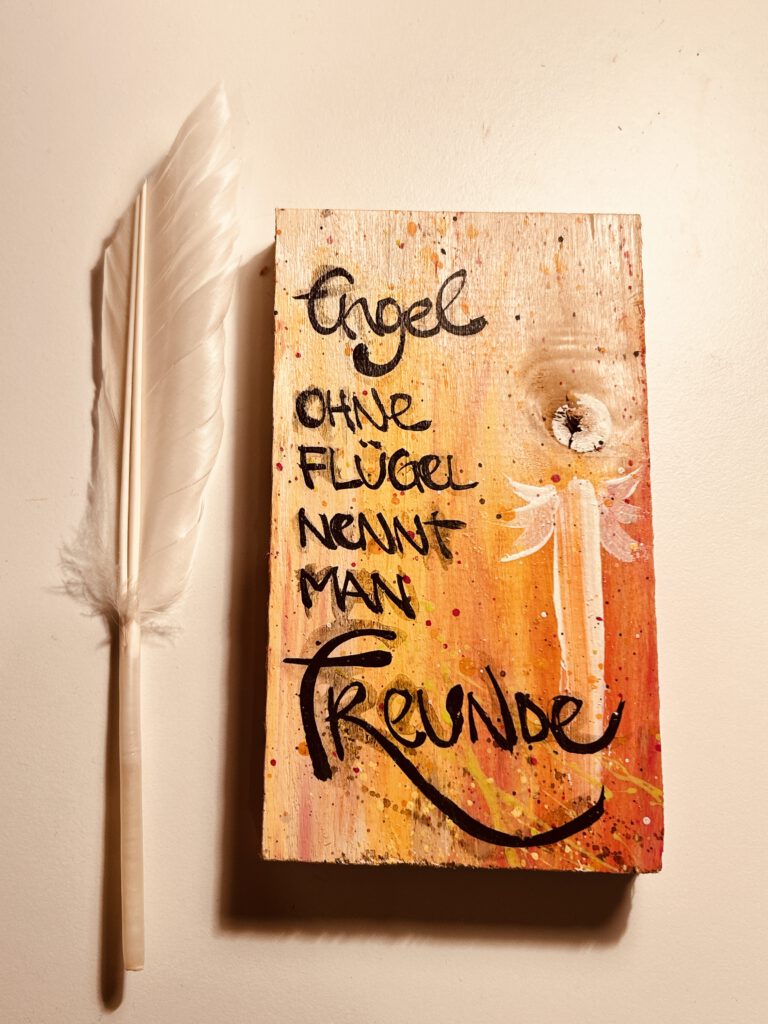 Engel
OHNE
FLÜGEL
NENNT
MAN
FREUNDE